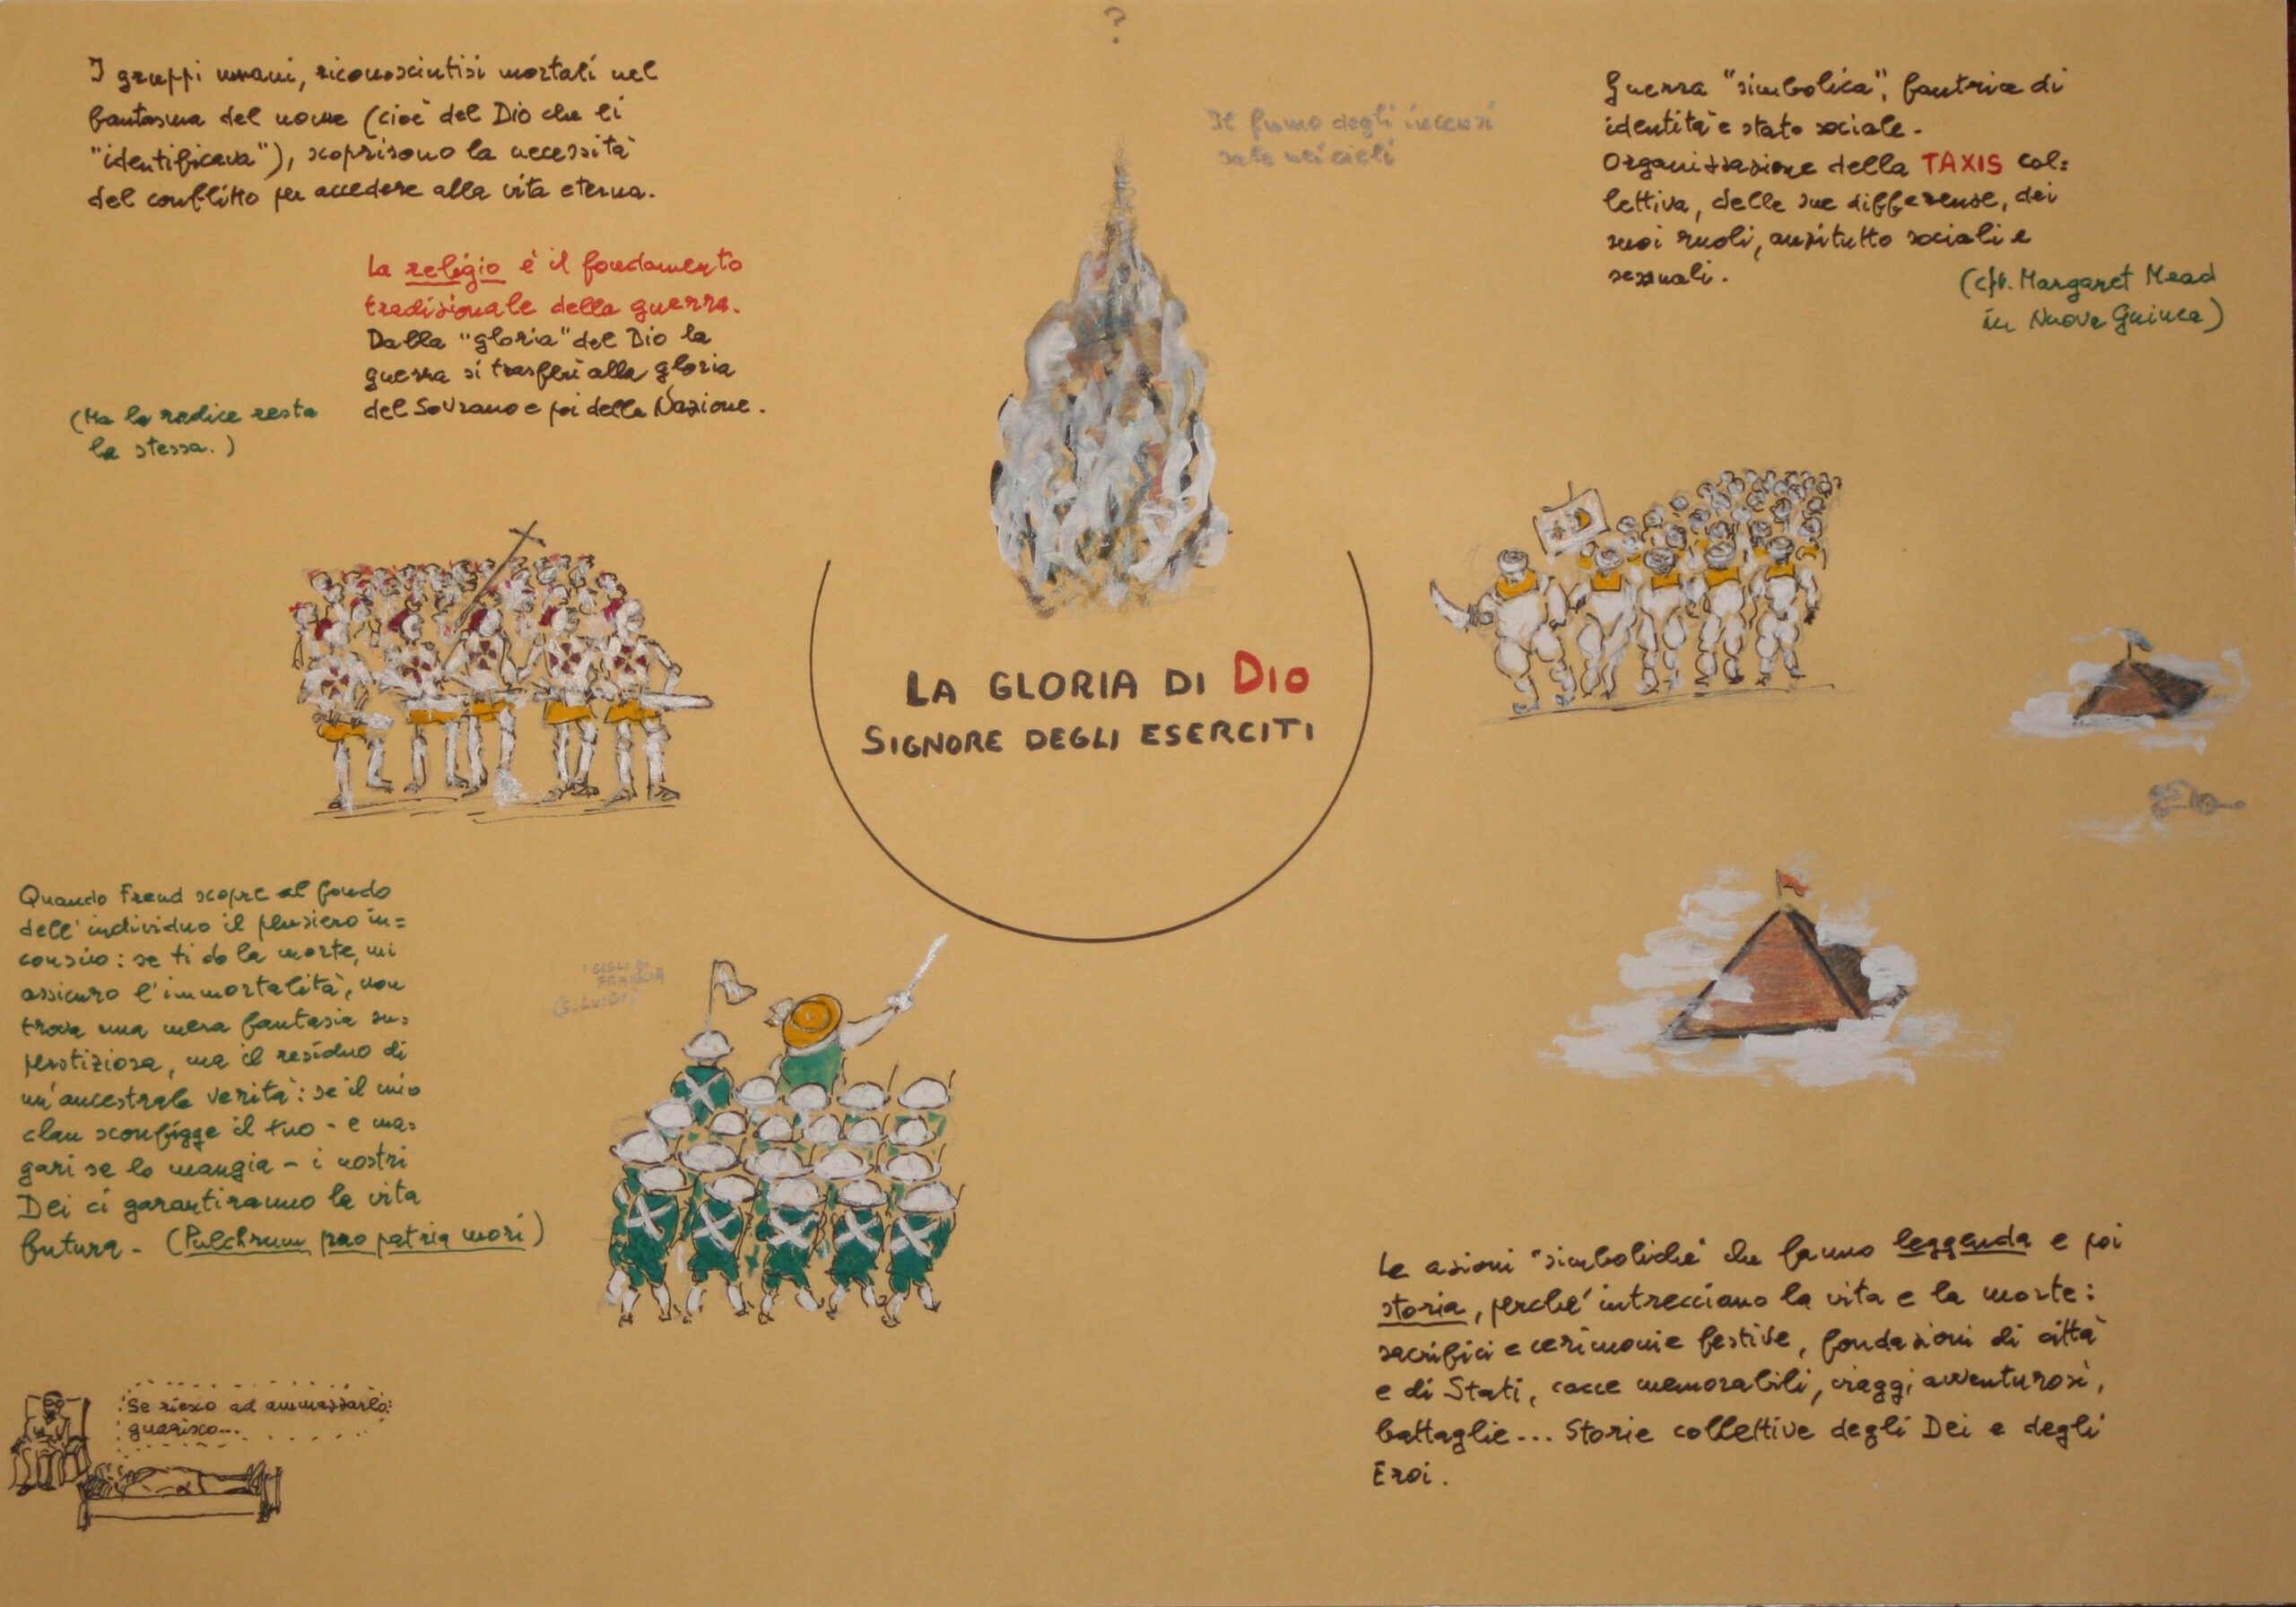 ?
I gruppi umani, riconoscintisi mortali nel
fantasma del nome (cioè del Dio che li
"identificava"), scoprirono la necessità
del conflitto per accedere alla vita eterna.
La religio è il fondamento
tradizionale della guerra.
Dalla "gloria" del Dio la
guerra si trasferì alla gloria
del Sovrano e poi della Nazione.
(Ma la radice resta
la stessa.)
Il fumo degli incensi
sale nei cieli
Guerra "simbolica", fautrice di
identità e stato sociale.
Organizzazione della TAXIS col=
lettiva, delle sue differenze, dei
suoi ruoli, anzitutto sociali e
sessuali.
(cfr. Margaret Mead
in Nuova Guinea)
LA GLORIA DI DIO
SIGNORE DEGLI ESERCITI
Quando Freud scopre al fondo
dell'individuo il pensiero in=
conscio: se ti do la morte, mi
assicuro l'immortalità, non
trova una mera fantasia su=
perstiziosa, ma il residuo di
un'ancestrale verità: se il mio
clan sconfigge il tuo - e ma=
gari se lo mangia - i nostri
Dei ci garantiranno la vita
futura - (Pulchrum pro patria mori)
I GIGLI DI
FRANCIA
(S. LUIGI)
Se riesco ad ammazzarlo:
guarisco...
Le azioni "simboliche" che fanno leggenda e poi
storia, perché intrecciano la vita e la morte:
sacrifici e cerimonie festive, fondazioni di città
e di Stati, cacce memorabili, viaggi avventurosi,
battaglie... Storie collettive degli Dei e degli
Eroi.